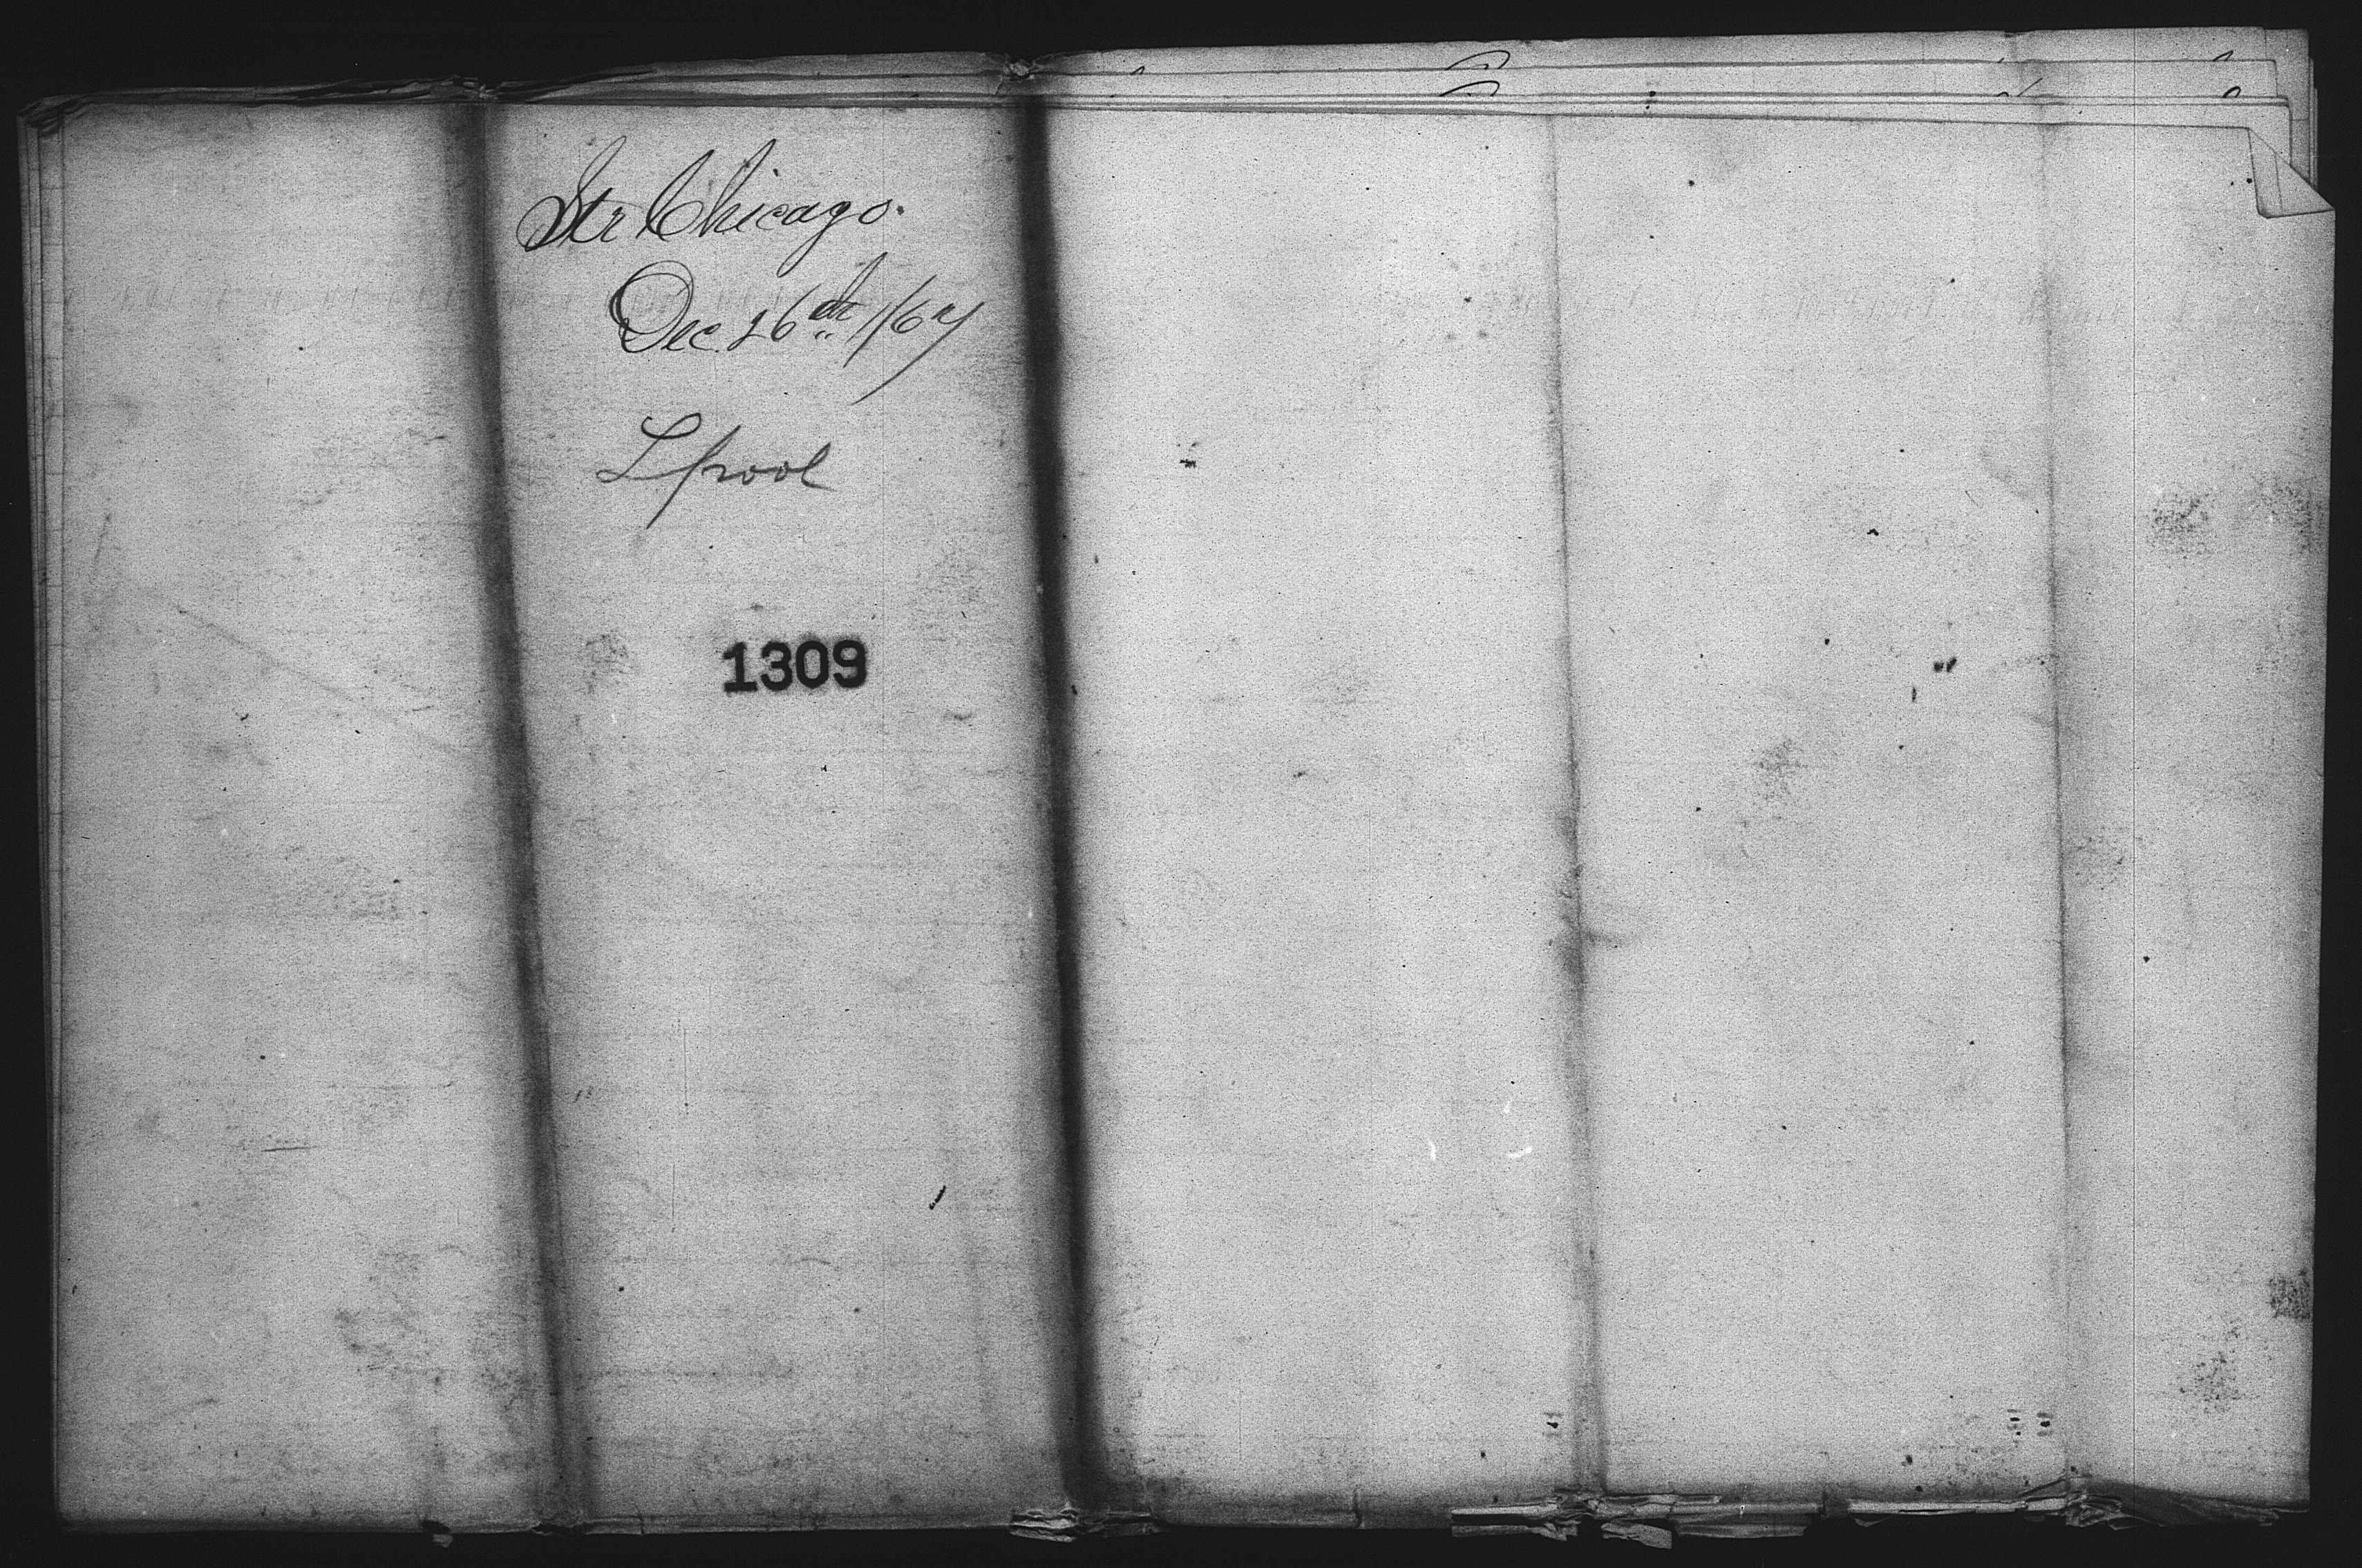 Str Chicago.
Dec. 26th 1/67
Lpool
1309